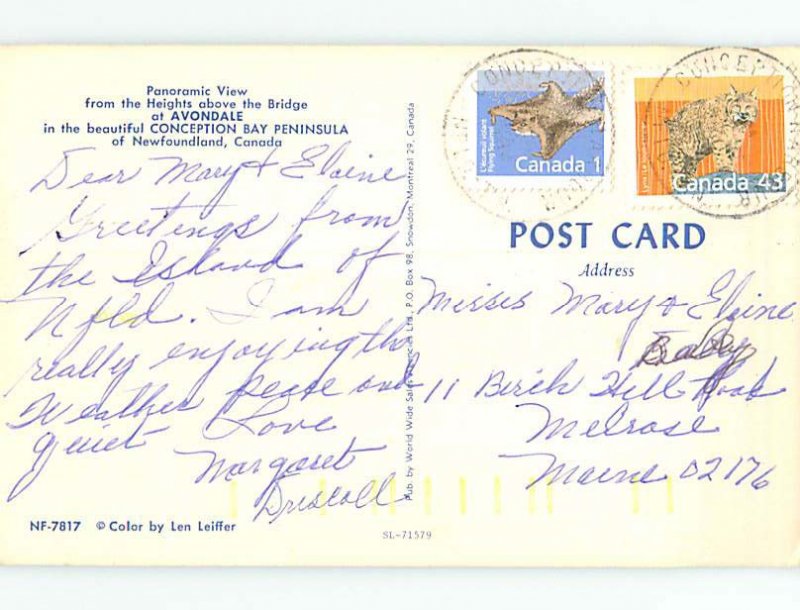 Panoramic View
from the Heights above the Bridge
at AVONDALE
in the beautiful CONCEPTION BAY PENINSULA
of Newfoundland, Canada
Dear Mary + Elaine
Greetings from
the Island of
Nfld. I am
really enjoying the
Weather peace and
quiet Love
Margaret
Driscoll
NF-7817 © Color by Len Leiffer
Pub. by World Wide Sales Agencies Ltd., P.O. Box 98, Snowdon, Montreal 29, Canada
SL-71579
L'écureuil volant
Flying Squirrel
Canada 1
Canada 43
CONCEPTION
POST CARD
Address
Misses Mary + Elaine
11 Birch Hill Road
Melrose
Maine 02176